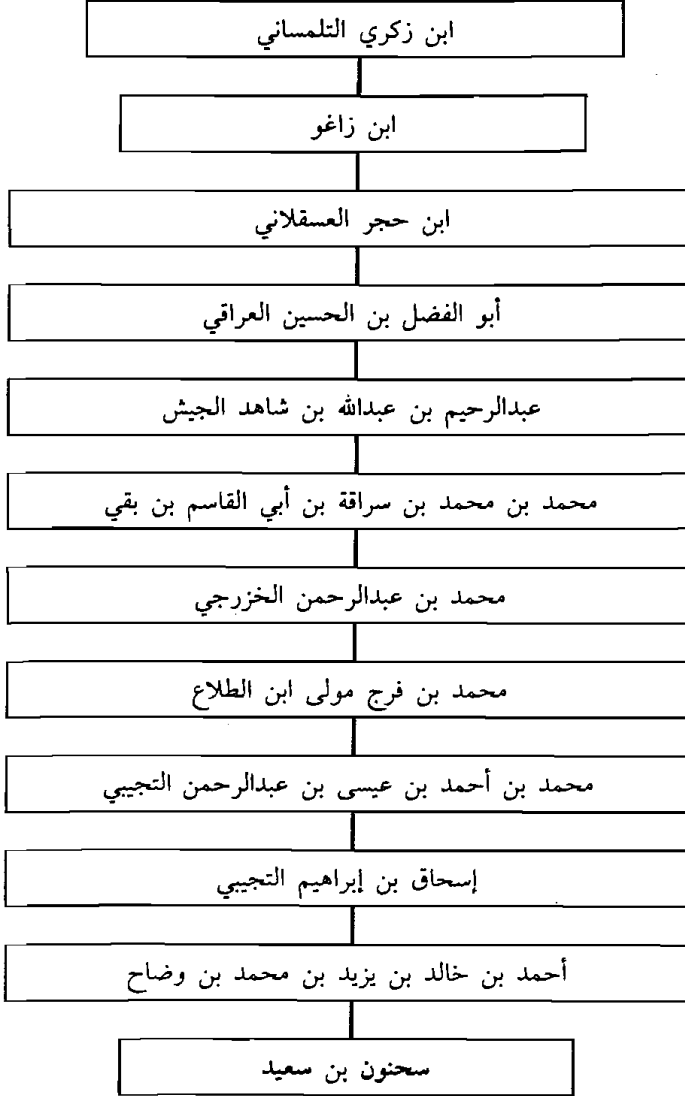 ابن زكري التلمساني
ابن زاغو
ابن حجر العسقلاني
أبو الفضل بن الحسين العراقي
عبدالرحيم بن عبدالله بن شاهد الجيش
محمد بن محمد بن سراقة بن أبي القاسم بن بقي
محمد بن عبدالرحمن الخزرجي
محمد بن فرج مولى ابن الطلاع
محمد بن أحمد بن عيسى بن عبدالرحمن التجيبي
إسحاق بن إبراهيم التجيبي
أحمد بن خالد بن يزيد بن محمد بن وضاح
سحنون بن سعيد